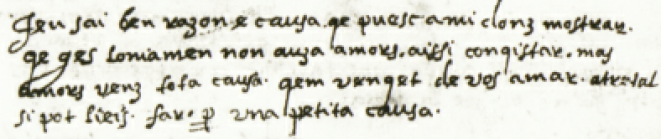 Jeu sai ben razon e causa. qe puesc a mi donz mostrar.
qe ges loniamen non auza amors. aissi conqistar. mas
amors venz tota causa. qem venqet de vos amar. atretal
si pot lieis. far. p una petita causa.